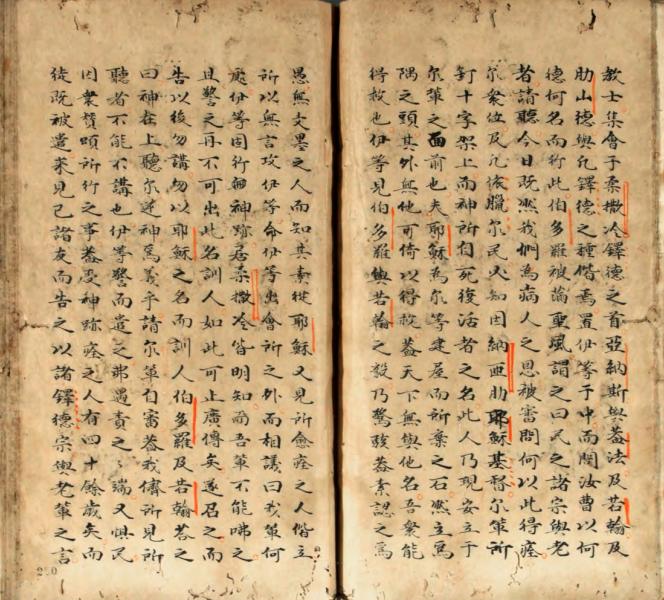 教士集會于柔撒冷鐸德之首亞納斯與蓋法及若翰及
肋山德與凡鐸德之種偕焉置伊等于中而問汝曹以何
德何名而行此伯多羅被滿聖風謂之曰民之諸宗與老
者請聽今日既然我們為病人之恩被審問何以此得痊
尔眾位及凡依臘尔民必知因納匝肋耶穌基督尔輩所
釘十字架上而神所自死復活者之名此人乃現安立于
尔輩之面前也夫耶穌為尔等建屋而所棄之石然立為
隅之頭其外無他可倚以得救蓋天下無與他名吾眾能
得救也伊等見伯多羅與若翰之毅乃驚駭蓋素認之為
愚無文墨之人而知其素從耶穌又見所愈痊之人偕立
所以無言攻伊等命伊等出會所之外而相議曰我輩何
處伊等固行一神跡居柔撒冷皆明知而吾輩不能咈之
且警之再不可出此名訓人如此可止廣傳矣遂召之而
告以後勿講勿以耶穌之名而訓人伯多羅及若翰答之
曰神在上聽尔逆神為義乎請尔輩自審蓋我儕所見所
聽者不能不講也伊等警而遣之弗遇責之之端又惧民
因眾贊頌所行之事蓋受神跡痊之人有四十餘歲矣而
徒既被遣來見己諸友而告之以諸鐸德宗與老輩之言